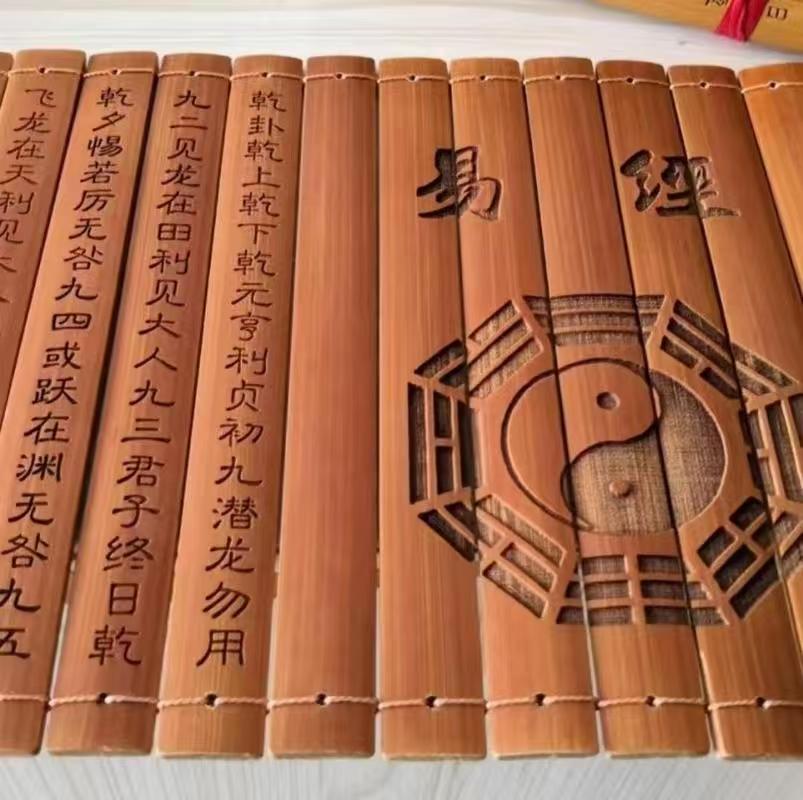 易經
乾卦乾上乾下乾元亨利贞初九潜龙勿用
九二见龙在田利见大人九三君子终日乾
乾夕惕若厉无咎九四或跃在渊无咎九五
飞龙在天利见大